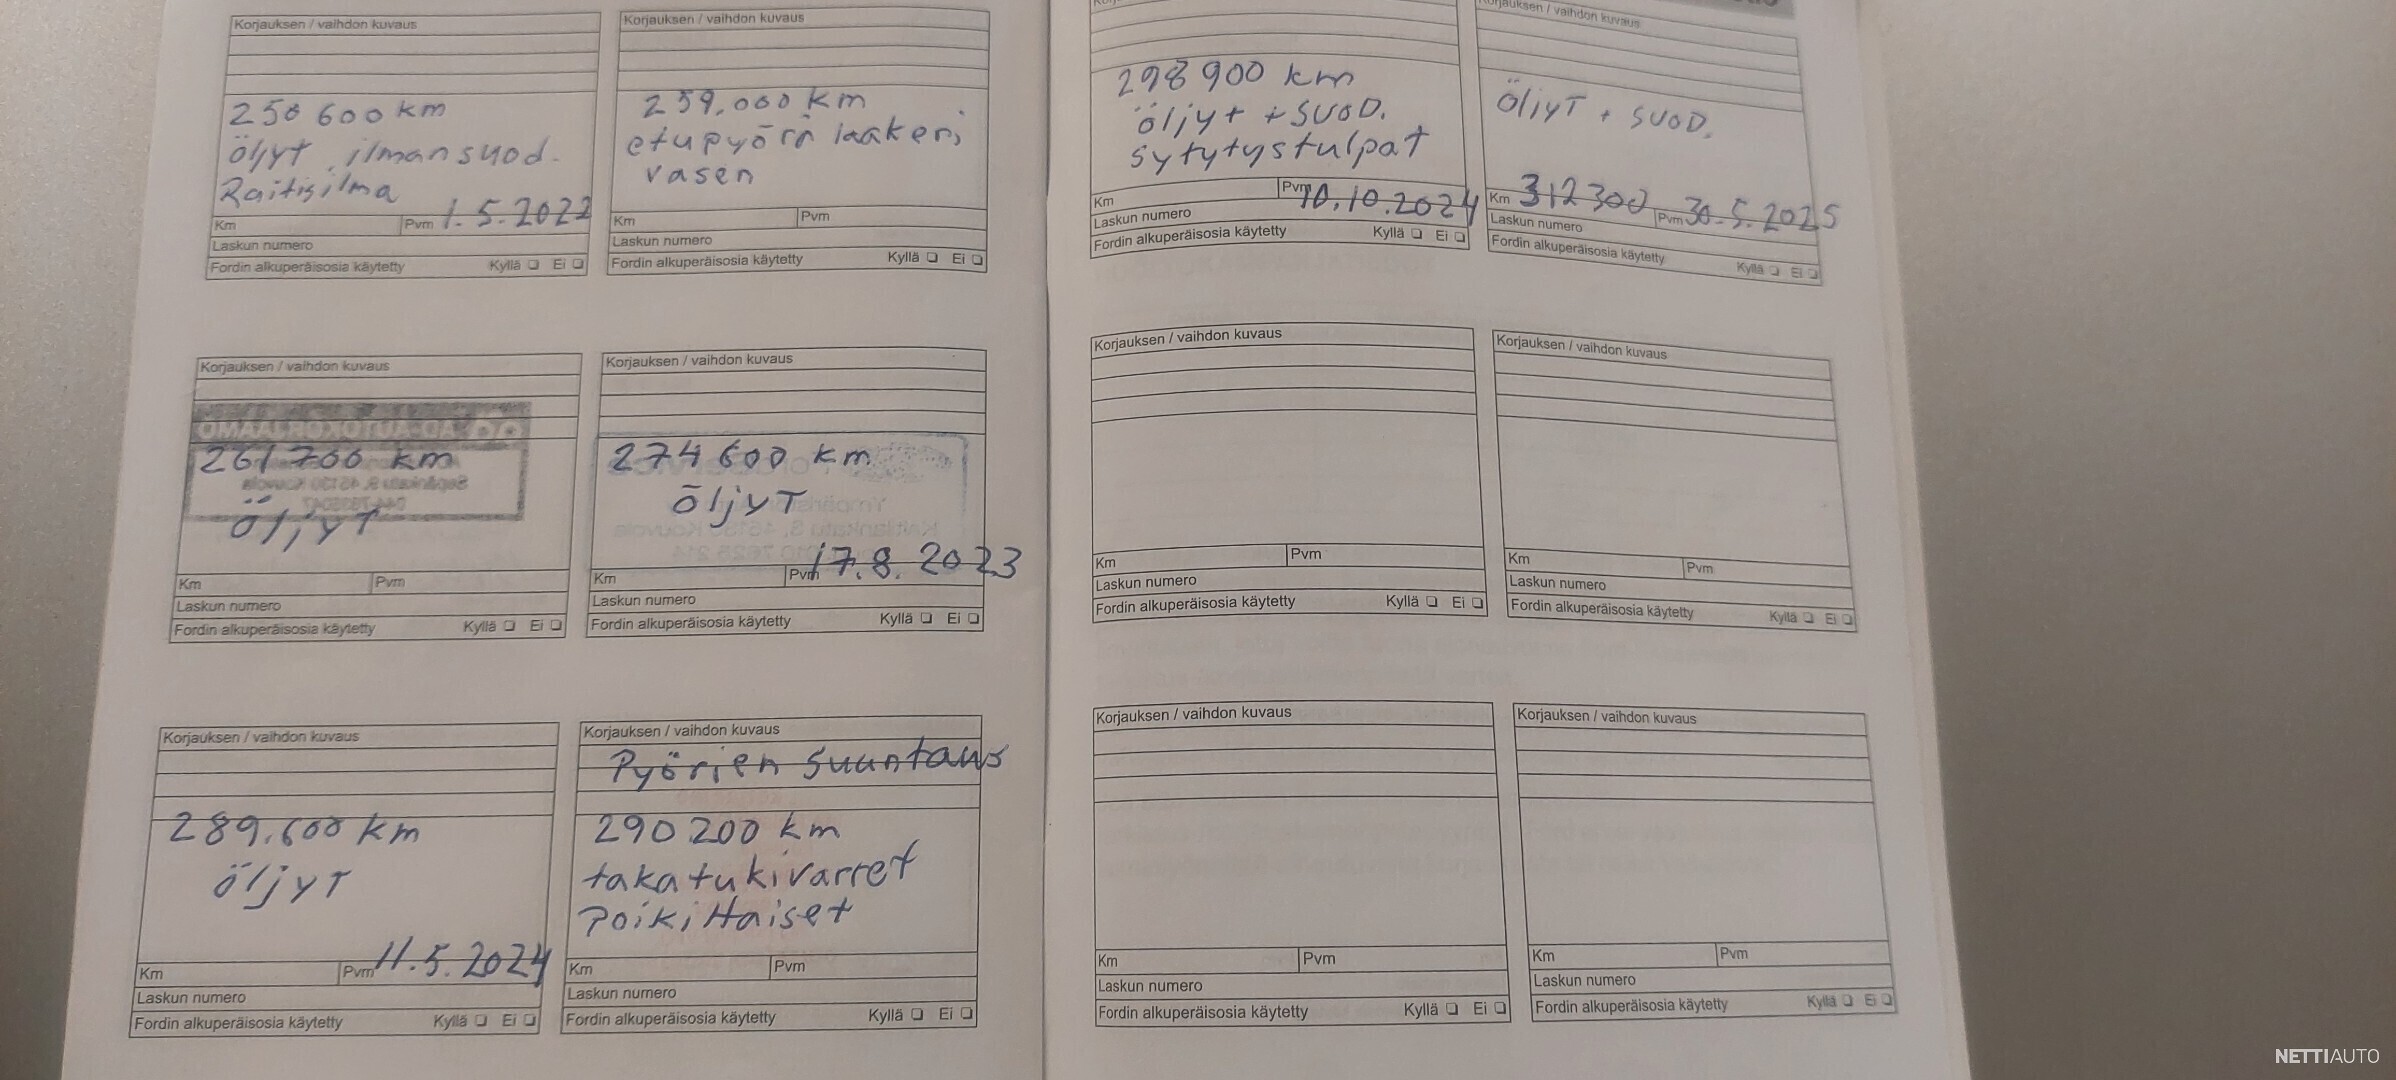 Korjauksen / vaihdon kuvaus
250 600 km
öljyt, ilmansuod.
Raitisilma
Km Pvm 1.5.2022
Laskun numero
Fordin alkuperäisosia käytetty Kyllä ❏ Ei ❏
Korjauksen / vaihdon kuvaus
259.000 km
etupyörä laakeri
vasen
Km Pvm
Laskun numero
Fordin alkuperäisosia käytetty Kyllä ❏ Ei ❏
Korjauksen / vaihdon kuvaus
261700 km
öljyt
Km Pvm
Laskun numero
Fordin alkuperäisosia käytetty Kyllä ❏ Ei ❏
Korjauksen / vaihdon kuvaus
274 600 km
öljyt
Km Pvm 17.8.2023
Laskun numero
Fordin alkuperäisosia käytetty Kyllä ❏ Ei ❏
Korjauksen / vaihdon kuvaus
289.600 km
öljyt
Km Pvm 11.5.2024
Laskun numero
Fordin alkuperäisosia käytetty Kyllä ❏ Ei ❏
Korjauksen / vaihdon kuvaus
Pyörien suuntaus
290 200 km
takatukivarret
poikittaiset
Km Pvm
Laskun numero
Fordin alkuperäisosia käytetty Kyllä ❏ Ei ❏
298 900 km
öljyt + suod.
sytytystulpat
Km Pvm 10.10.2024
Laskun numero
Fordin alkuperäisosia käytetty Kyllä ❏ Ei ❏
Korjauksen / vaihdon kuvaus
öljyt + suod.
Km 312300 Pvm 30.5.2025
Laskun numero
Fordin alkuperäisosia käytetty Kyllä ❏ Ei ❏
Korjauksen / vaihdon kuvaus
Km Pvm
Laskun numero
Fordin alkuperäisosia käytetty Kyllä ❏ Ei ❏
Korjauksen / vaihdon kuvaus
Km Pvm
Laskun numero
Fordin alkuperäisosia käytetty Kyllä ❏ Ei ❏
Korjauksen / vaihdon kuvaus
Km Pvm
Laskun numero
Fordin alkuperäisosia käytetty Kyllä ❏ Ei ❏
Korjauksen / vaihdon kuvaus
Km Pvm
Laskun numero
Fordin alkuperäisosia käytetty Kyllä ❏ Ei ❏
NETTIAUTO